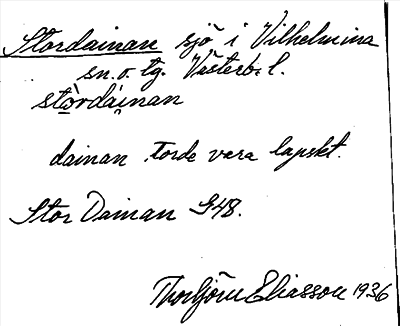 Stordainan sjö i Vilhelmina
sn. o. tg. Västerb. l.
stòrdáinan
dainan torde vara lapskt.
Stor Dainan G48.
Thorbjörn Eliasson 1936